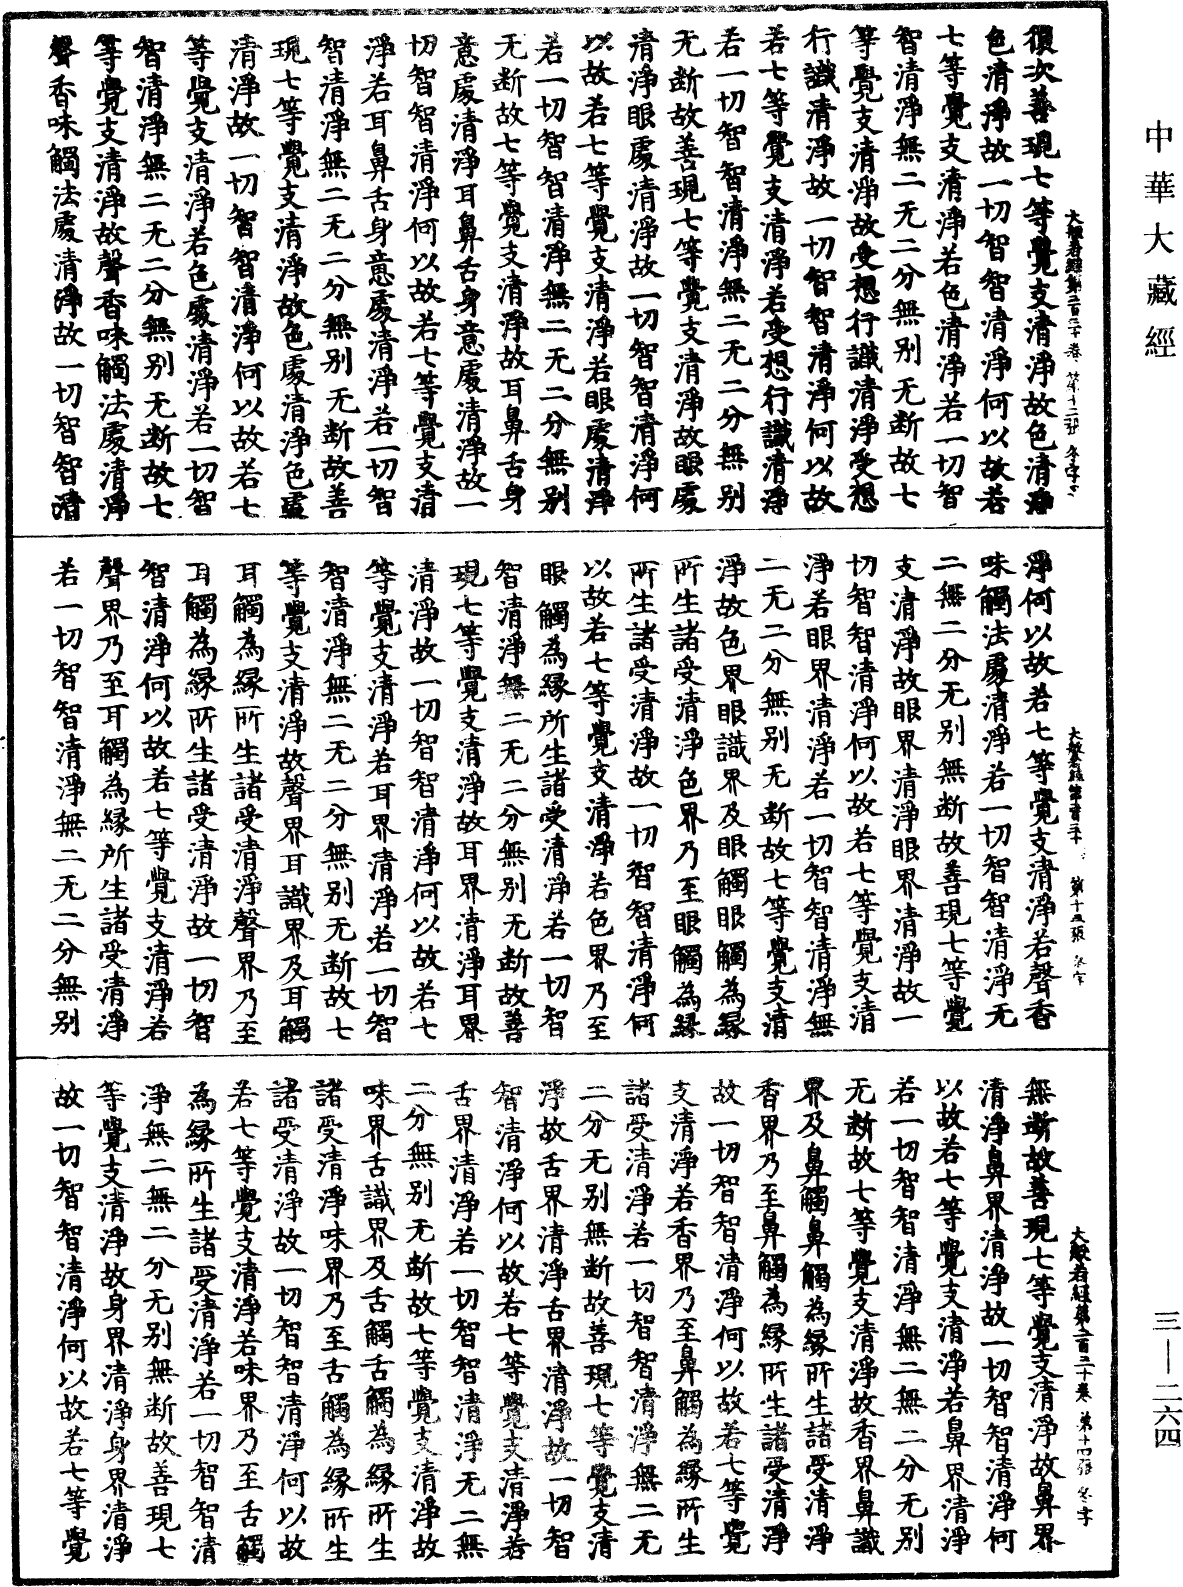 中華大藏經
復次善現七等覺支清淨故色清淨
色清淨故一切智智清淨何以故若
七等覺支清淨若色清淨若一切智
智清淨無二无二分無别无断故七
等覺支清淨故受想行識清淨受想
行識清淨故一切智智清淨何以故
若七等覺支清淨若受想行識清淨
若一切智智清淨無二无二分無别
无断故善現七等覺支清淨故眼處
清淨眼處清淨故一切智智清淨何
以故若七等覺支清淨若眼處清淨
若一切智智清淨無二无二分無别
无断故七等覺支清淨故耳鼻舌身
意處清淨耳鼻舌身意處清淨故一
切智智清淨何以故若七等覺支清
淨若耳鼻舌身意處清淨若一切智
智清淨無二无二分無别无断故善
現七等覺支清淨故色處清淨色處
清淨故一切智智清淨何以故若七
等覺支清淨若色處清淨若一切智
智清淨無二无二分無别无断故七
等覺支清淨故聲香味觸法處清淨
聲香味觸法處清淨故一切智智清
淨何以故若七等覺支清淨若聲香
味觸法處清淨若一切智智清淨无
二無二分无别無断故善現七等覺
支清淨故眼界清淨眼界清淨故一
切智智清淨何以故若七等覺支清
淨若眼界清淨若一切智智清淨無
二无二分無别无断故七等覺支清
淨故色界眼識界及眼觸眼觸為緣
所生諸受清淨色界乃至眼觸為緣
所生諸受清淨故一切智智清淨何
以故若七等覺支清淨若色界乃至
眼觸為緣所生諸受清淨若一切智
智清淨無二无二分無别无断故善
現七等覺支清淨故耳界清淨耳界
清淨故一切智智清淨何以故若七
等覺支清淨若耳界清淨若一切智
智清淨無二无二分無别无断故七
等覺支清淨故聲界耳識界及耳觸
耳觸為緣所生諸受清淨聲界乃至
耳觸為緣所生諸受清淨故一切智
智清淨何以故若七等覺支清淨若
聲界乃至耳觸為緣所生諸受清淨
若一切智智清淨無二无二分無别
大般若經第二百三十卷 第十四張 冬字
無断故善現七等覺支清淨故鼻界
清淨鼻界清淨故一切智智清淨何
以故若七等覺支清淨若鼻界清淨
若一切智智清淨無二無二分无别
无断故七等覺支清淨故香界鼻識
界及鼻觸鼻觸為緣所生諸受清淨
香界乃至鼻觸為緣所生諸受清淨
故一切智智清淨何以故若七等覺
支清淨若香界乃至鼻觸為緣所生
諸受清淨若一切智智清淨無二无
二分无别無断故善現七等覺支清
淨故舌界清淨舌界清淨故一切智
智清淨何以故若七等覺支清淨若
舌界清淨若一切智智清淨无二無
二分無别无断故七等覺支清淨故
味界舌識界及舌觸舌觸為緣所生
諸受清淨味界乃至舌觸為緣所生
諸受清淨故一切智智清淨何以故
若七等覺支清淨若味界乃至舌觸
為緣所生諸受清淨若一切智智清
淨無二無二分无别無断故善現七
等覺支清淨故身界清淨身界清淨
故一切智智清淨何以故若七等覺
三—二六四